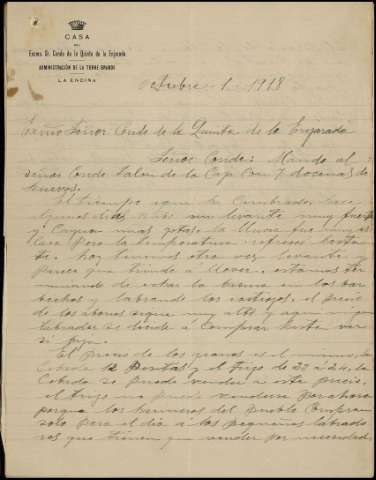 CASA
DEL
Excmo. Sr. Conde de la Quinta de la Enjarada
ADMINISTRACIÓN DE LA TORRE GRANDE
LA ENCINA
Octubre 1 1918
Exmo Señor Conde de la Quinta de la Enjarada
Señor Conde: Mando al
señor Conde talon de la Caja con 7 docenas de
huevos.
El tiempo aqui ha Cambiado hace
algunos dias un levante muy fuerte
y Cayeron unas gotas la lluvia fue muy es
casa pero la temperatura refresco bastan
te. hoy tenemos otra vez levante
parece que tiende a llover. estamos ter
minando de echar la basura en los bar
bechos y labrando los rastrojos. el precio
de los abonos sigue muy alto y aqui ningun
labrador se decide a comprar hasta ver
si baja.
El precio de los granos es el mismo, la
Cebada 12 pesetas y el trigo de 22 a 24, la
Cebada se puede vender a este precio,
el trigo no puede venderse por ahora
porque los harineros del pueblo Compran
solo para el dia a los pequeños labrado
res que tienen que vender por necesidad.